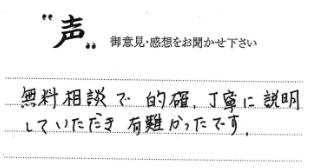 "声" 御意見・感想をお聞かせ下さい
無料相談で 的確、丁寧に説明
していただき 有難かったです。